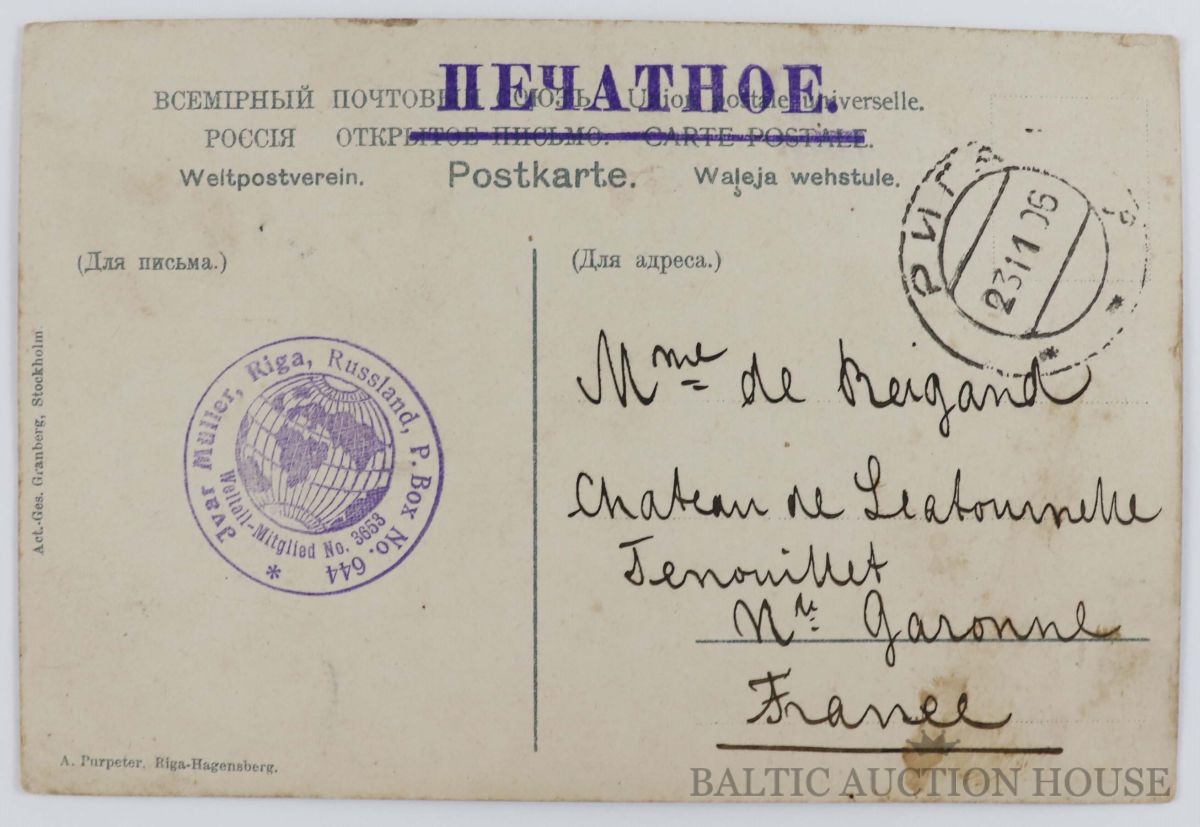 ПЕЧАТНОЕ.
ВСЕМІРНЫЙ ПОЧТОВЫЙ СОЮЗЪ. Union postale universelle.
РОССІЯ ОТКРЫТОЕ ПИСЬМО. CARTE POSTALE.
Weltpostverein. Postkarte. Waļeja wehstule.
(Для письма.)
(Для адреса.)
РИГА
23 11 06
Mme de Reigand
Chateau de
Fenouillet
Garonne
France
Jvar Müller, Riga, Russland, P. Box No. 644 *
Weltall-Mitglied No. 3653
Act.-Ges. Granberg, Stockholm
A. Purpeter, Riga-Hagensberg.
BALTIC AUCTION HOUSE